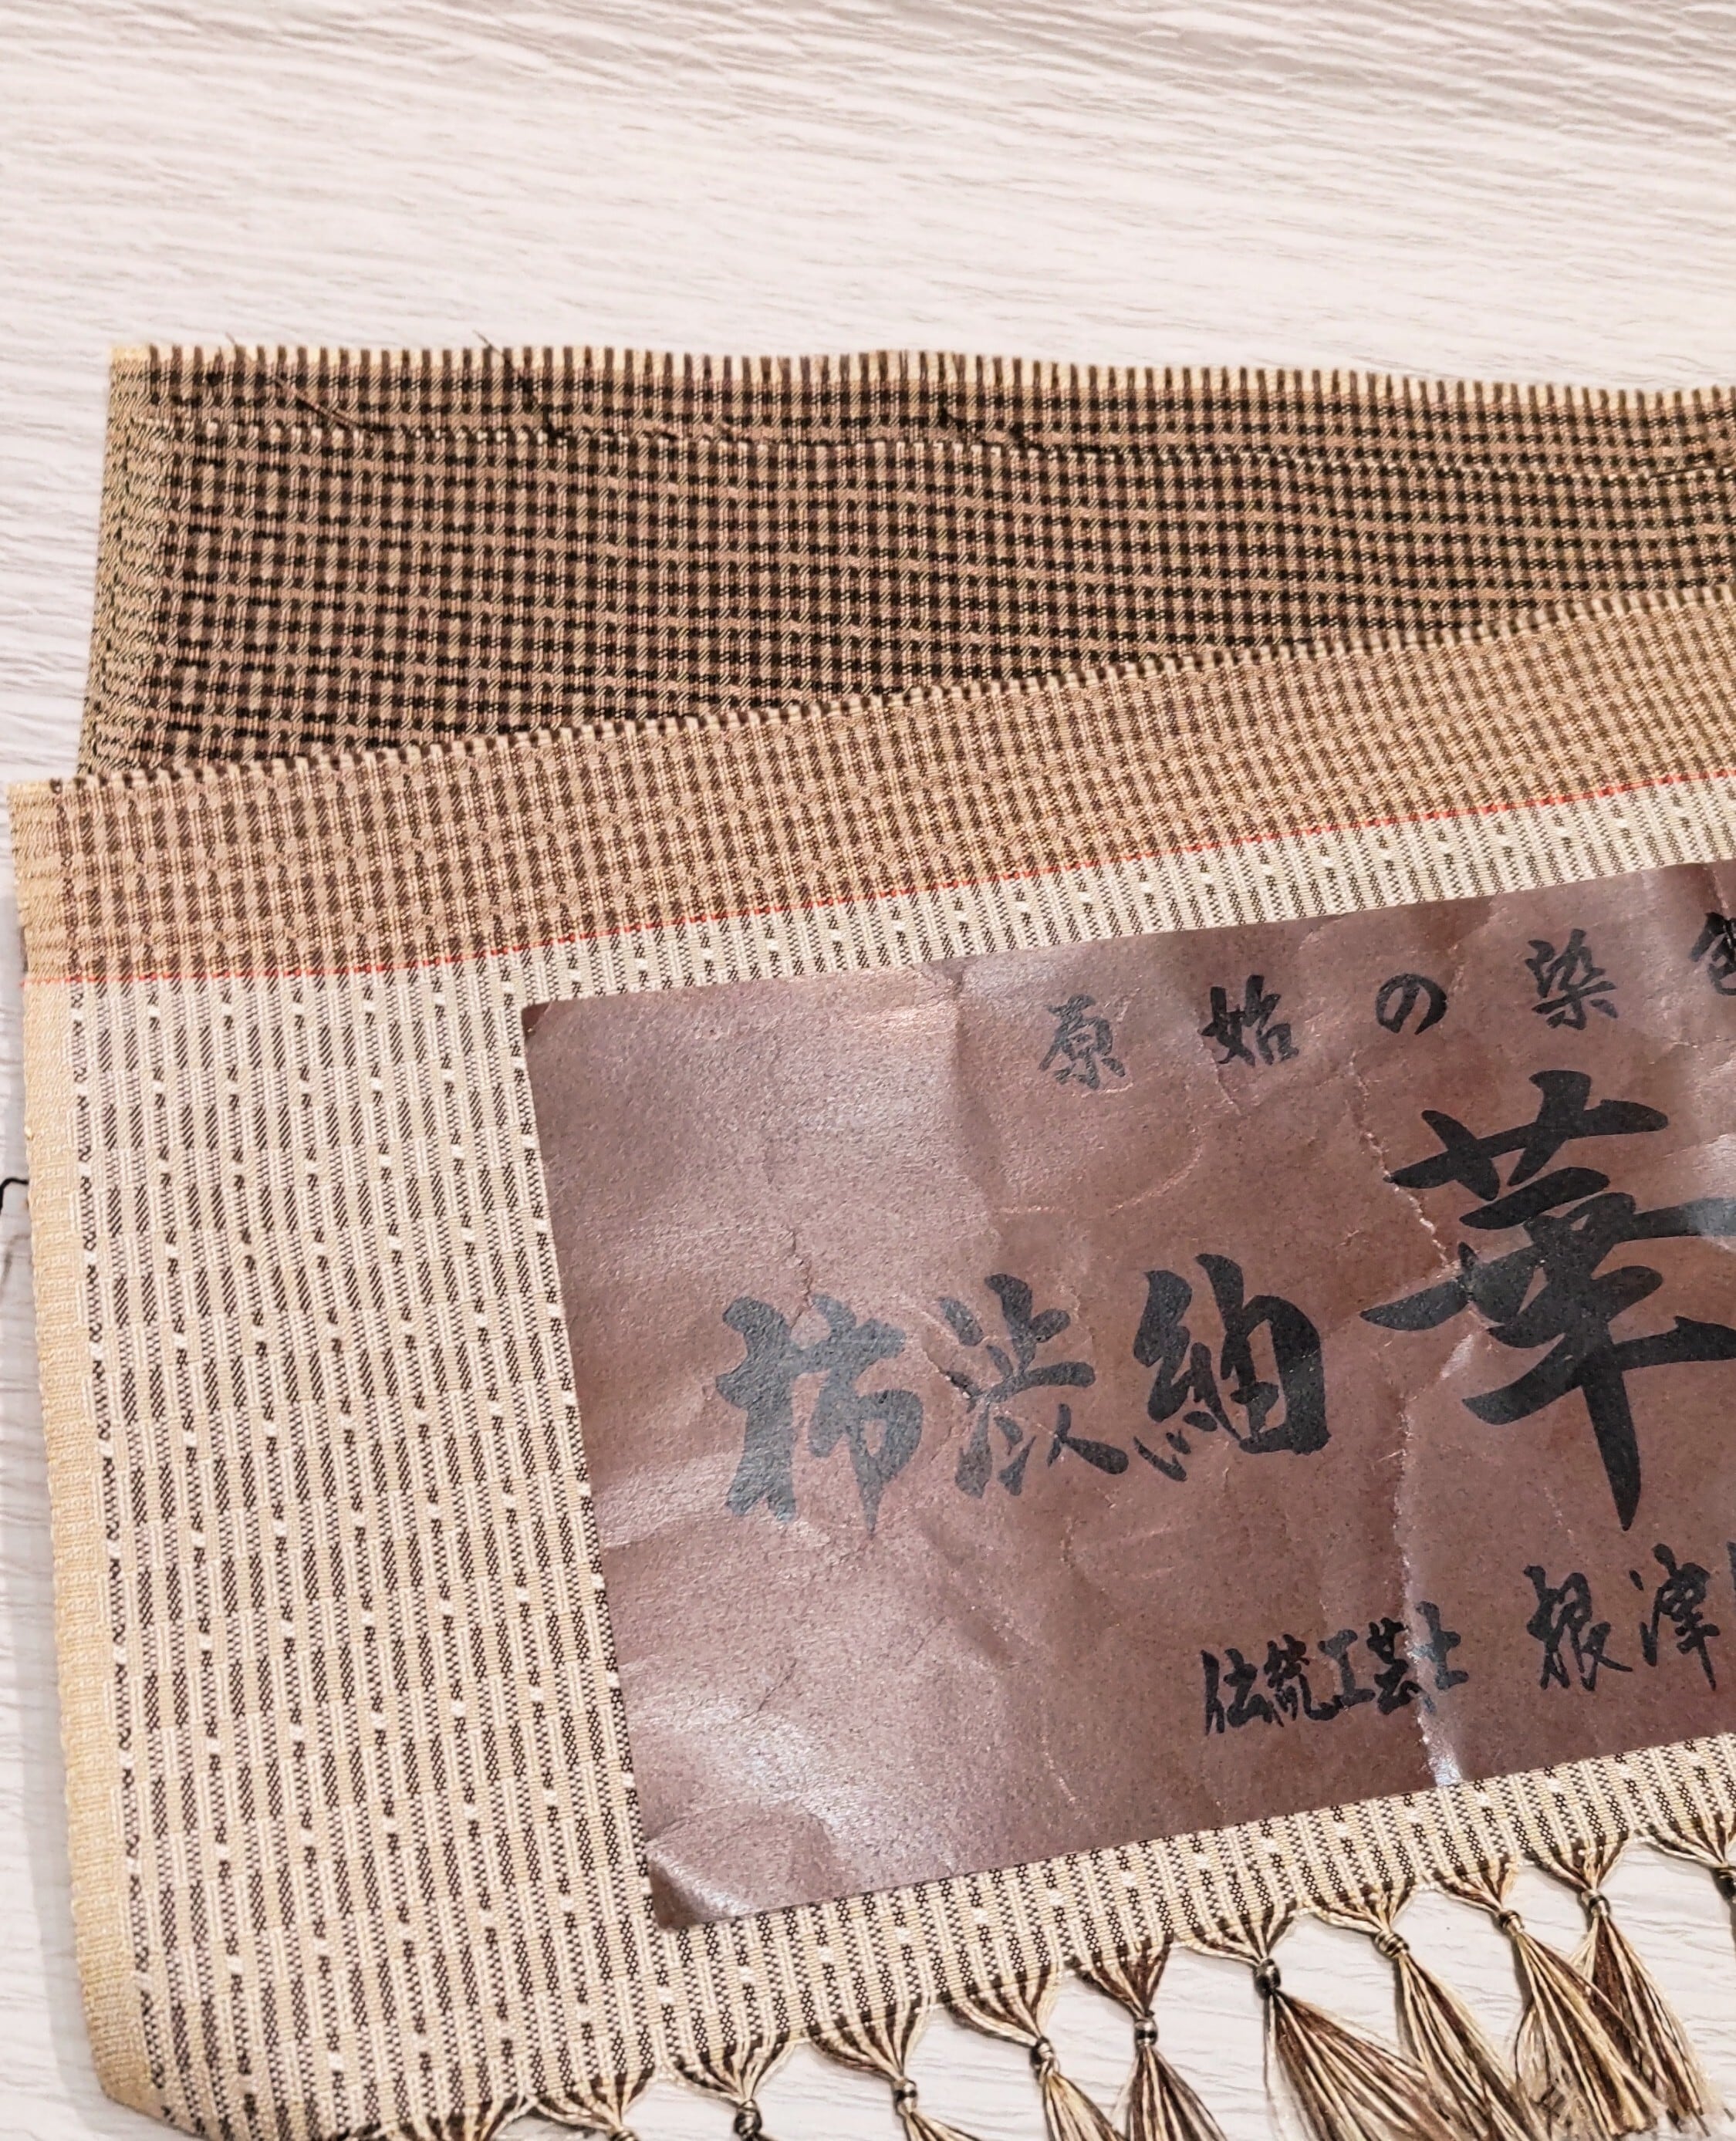 原始の染色
柿渋紬 華
伝統工芸士 根津